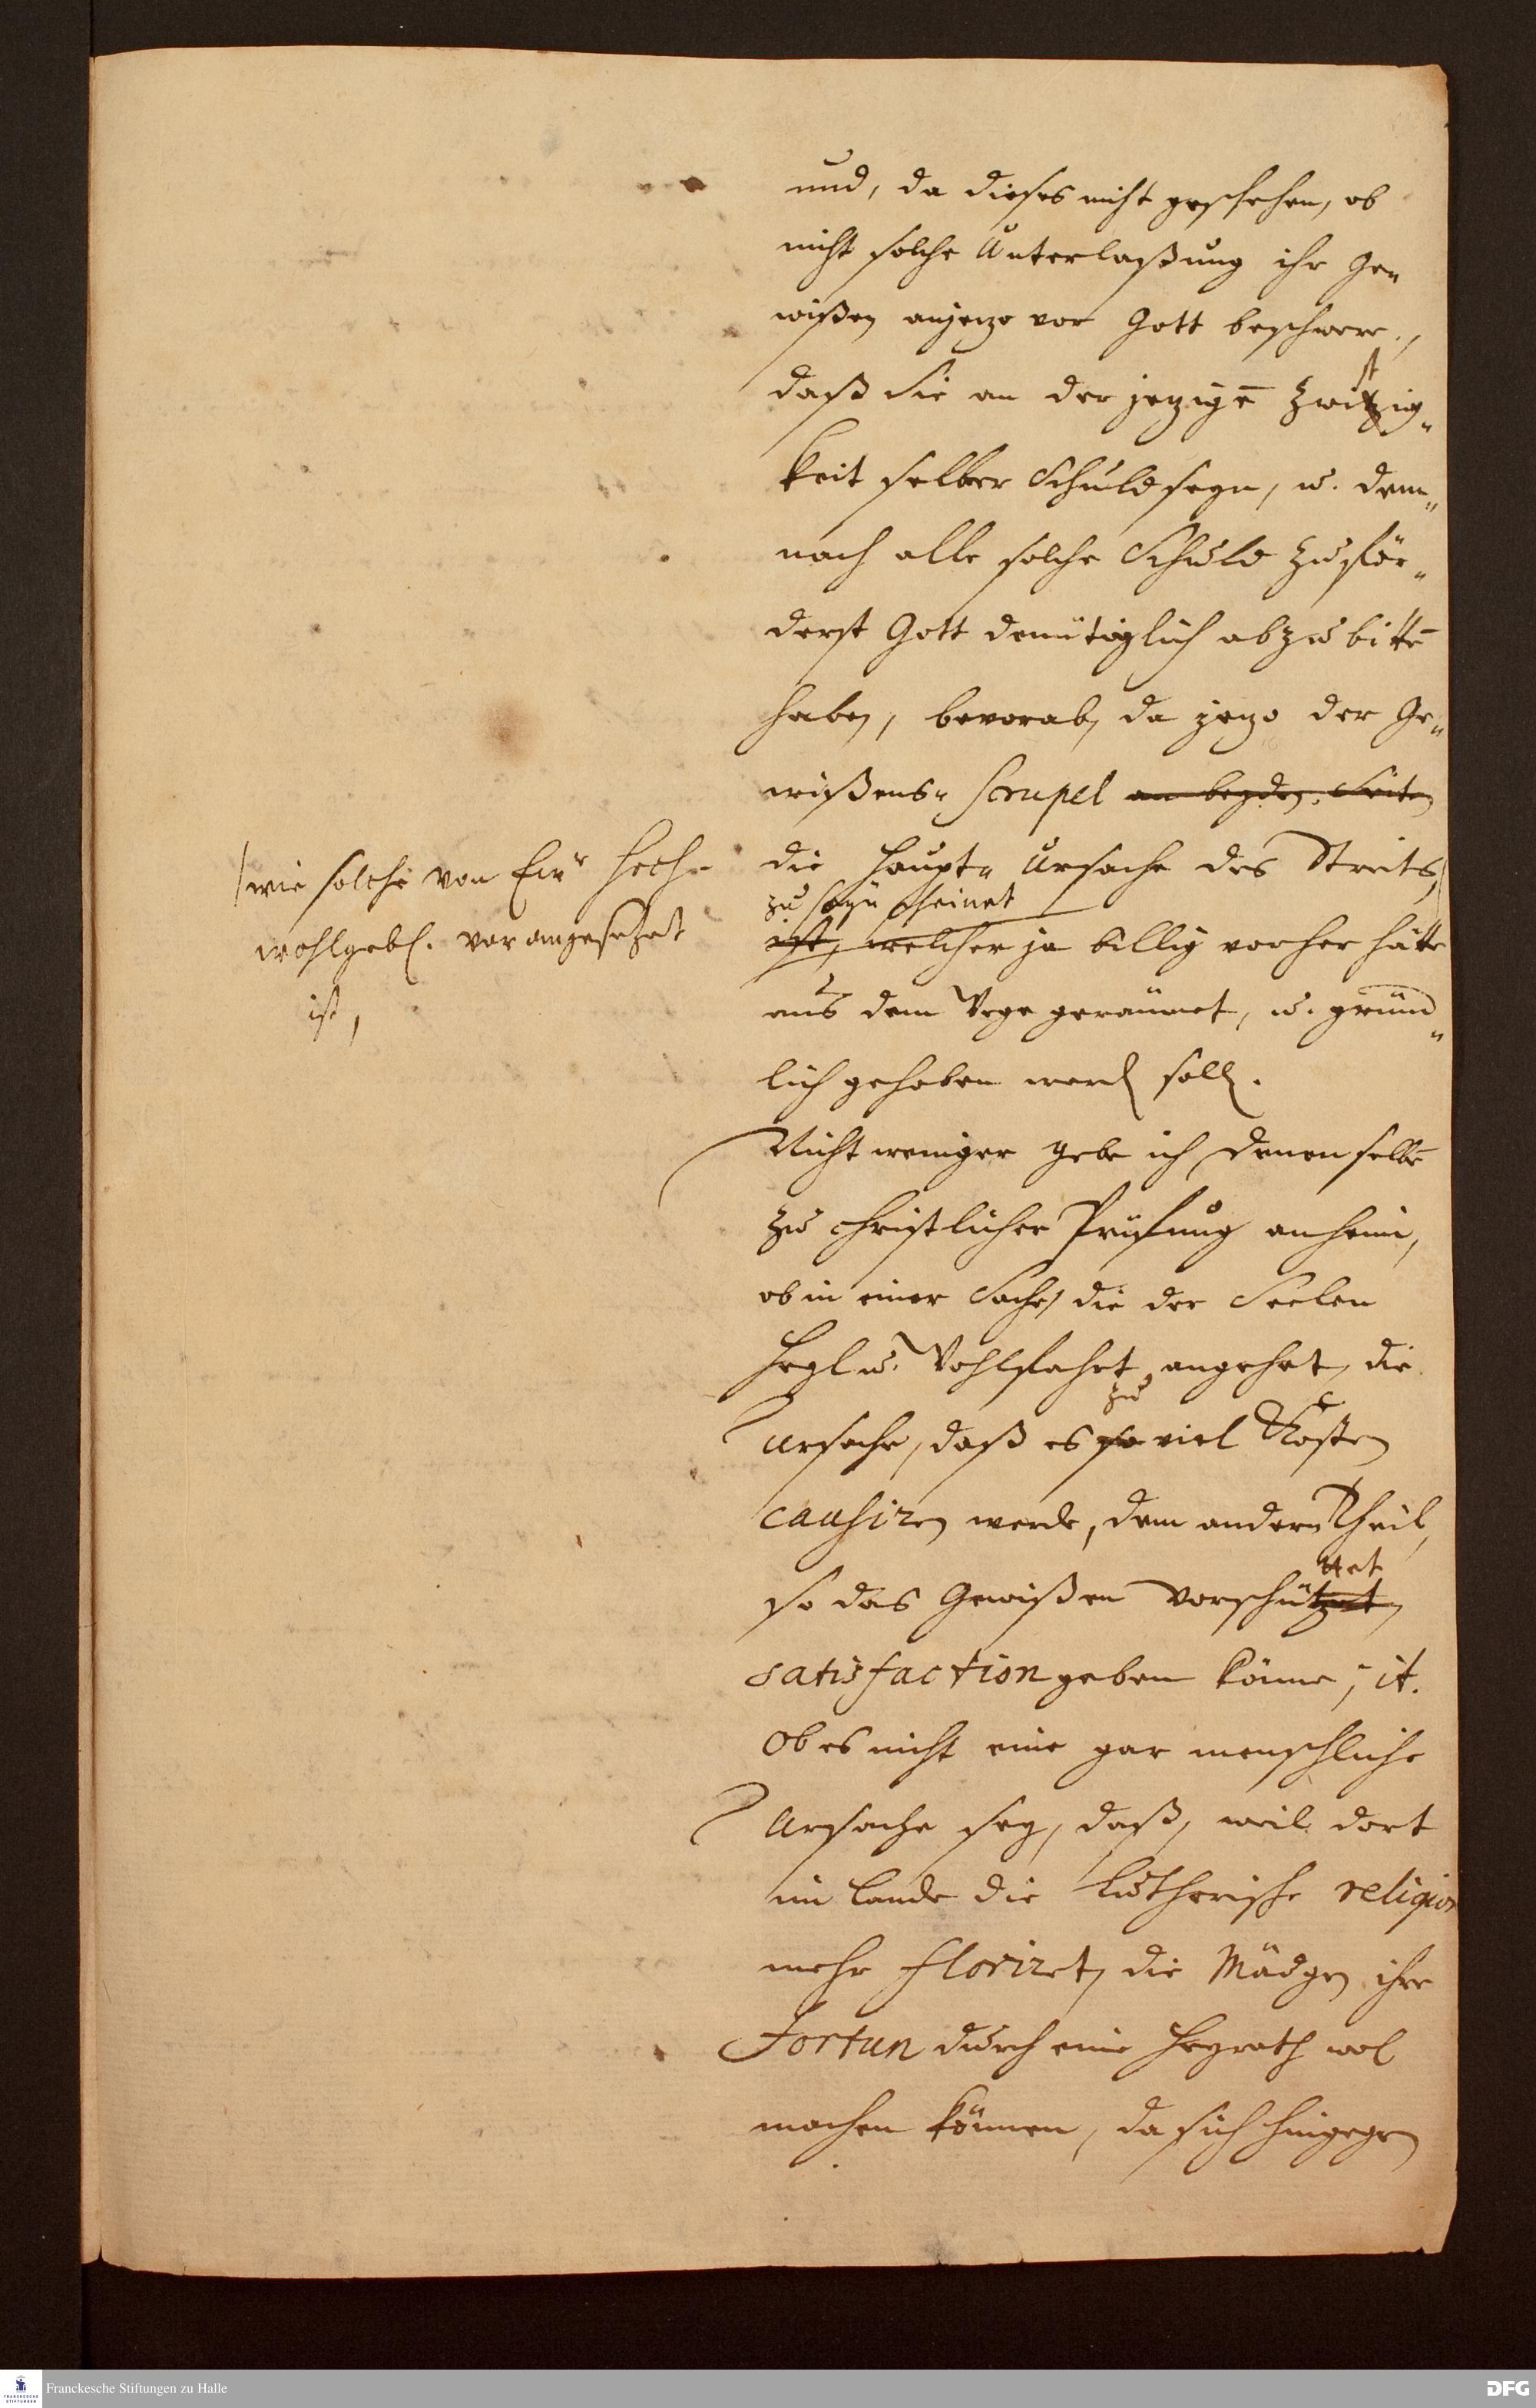 und, da dieses nicht geschehen, ob
nicht solche Unterlaßung ihr Ge-
wißen anjezo vor Gott beschwere,
daß Sie an der jezigē Zwistig-
keit selber Schuld seyn, u. dem-
nach alle solche Schuld zuför-
derst Gott demütiglich abzubittē
haben, bevorab, da jezo der Ge-
wißens- Scrupel an beyden Seiten
die Haupt- Ursache des Streits,
/wie solche von Eur Hoch-
wohlgeb. vor angesehet
ist,
zu seyn scheinet
ist, welcher ja billig vorher hätte
aus dem Wege geräumet, u. gründ-
lich gehoben werd soll.
Nicht weniger gebe ich denenselbē
zu christlicher Prüfung anheim,
ob in einer Sache, die der Seelen
Heyl u. Wohlfahrt angehet, die
zu
Ursache, daß es so viel Kosten
causiren werde, dem andern Theil,
ttet
so das Gewißen vorschützet,
satisfaction geben könne; it.
Ob es nicht eine gar menschliche
Ursache sey, daß, weil dort
im Lande die Lutherische religion
mehr floriret, die Mädgen ihre
Fortun durch eine Heyrath wol
machen können, da sich hingegen
Franckesche Stiftungen zu Halle
DFG